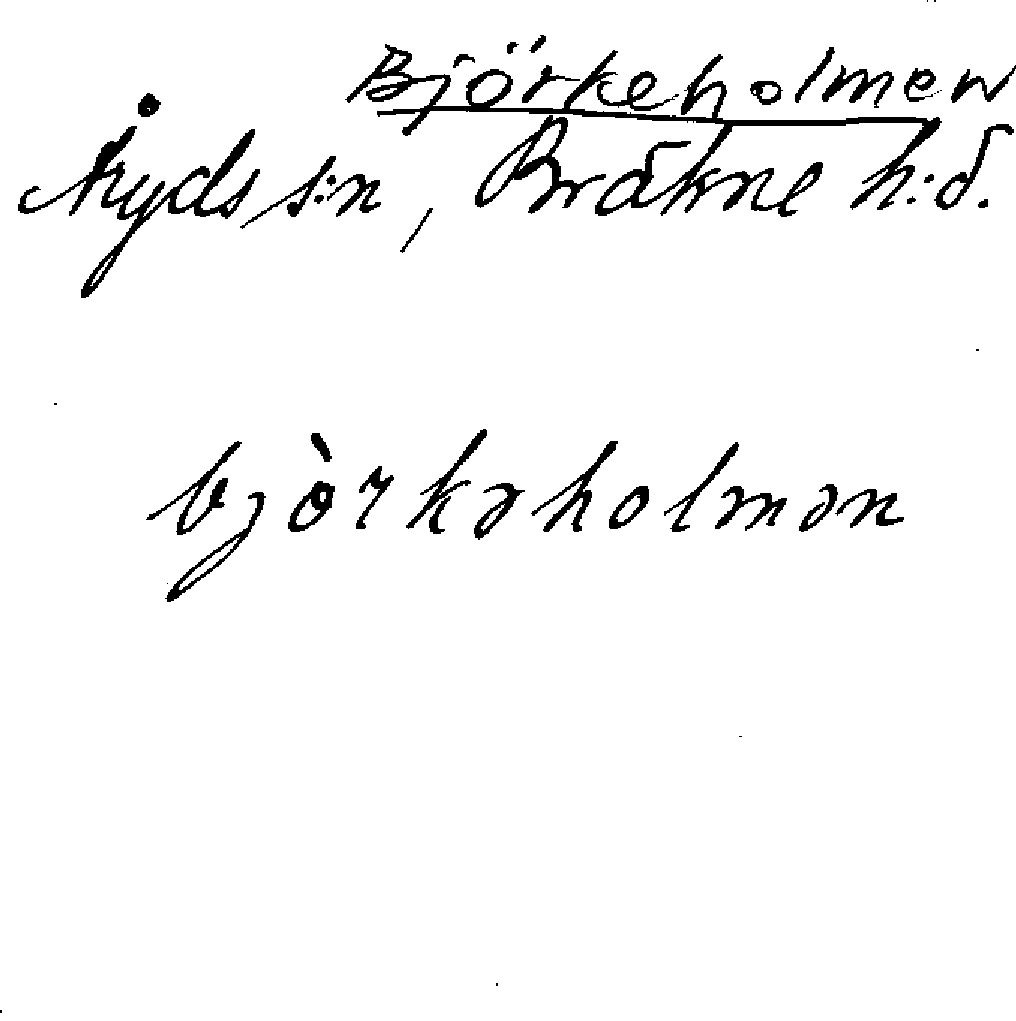 Björkeholmen
Åryds s:n, Bräkne h:d.
bjòrkəholmən